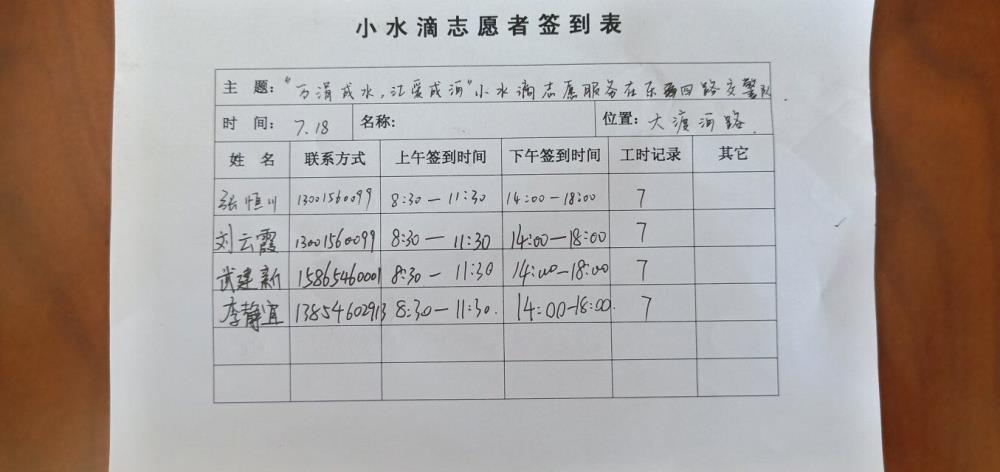 小水滴志愿者签到表
主 题：“百涓成水，汇爱成河”小水滴志愿服务在东西四路交警队
时 间： 7.18 名称： 位置：大渡河路
姓 名 联系方式 上午签到时间 下午签到时间 工时记录 其它
张恒川 13001560099 8:30—11:30 14:00—18:00 7
刘云霞 13001560099 8:30—11:30 14:00—18:00 7
武建新 15865460001 8:30—11:30 14:00—18:00 7
李静宜 13854602913 8:30—11:30. 14:00-18:00. 7